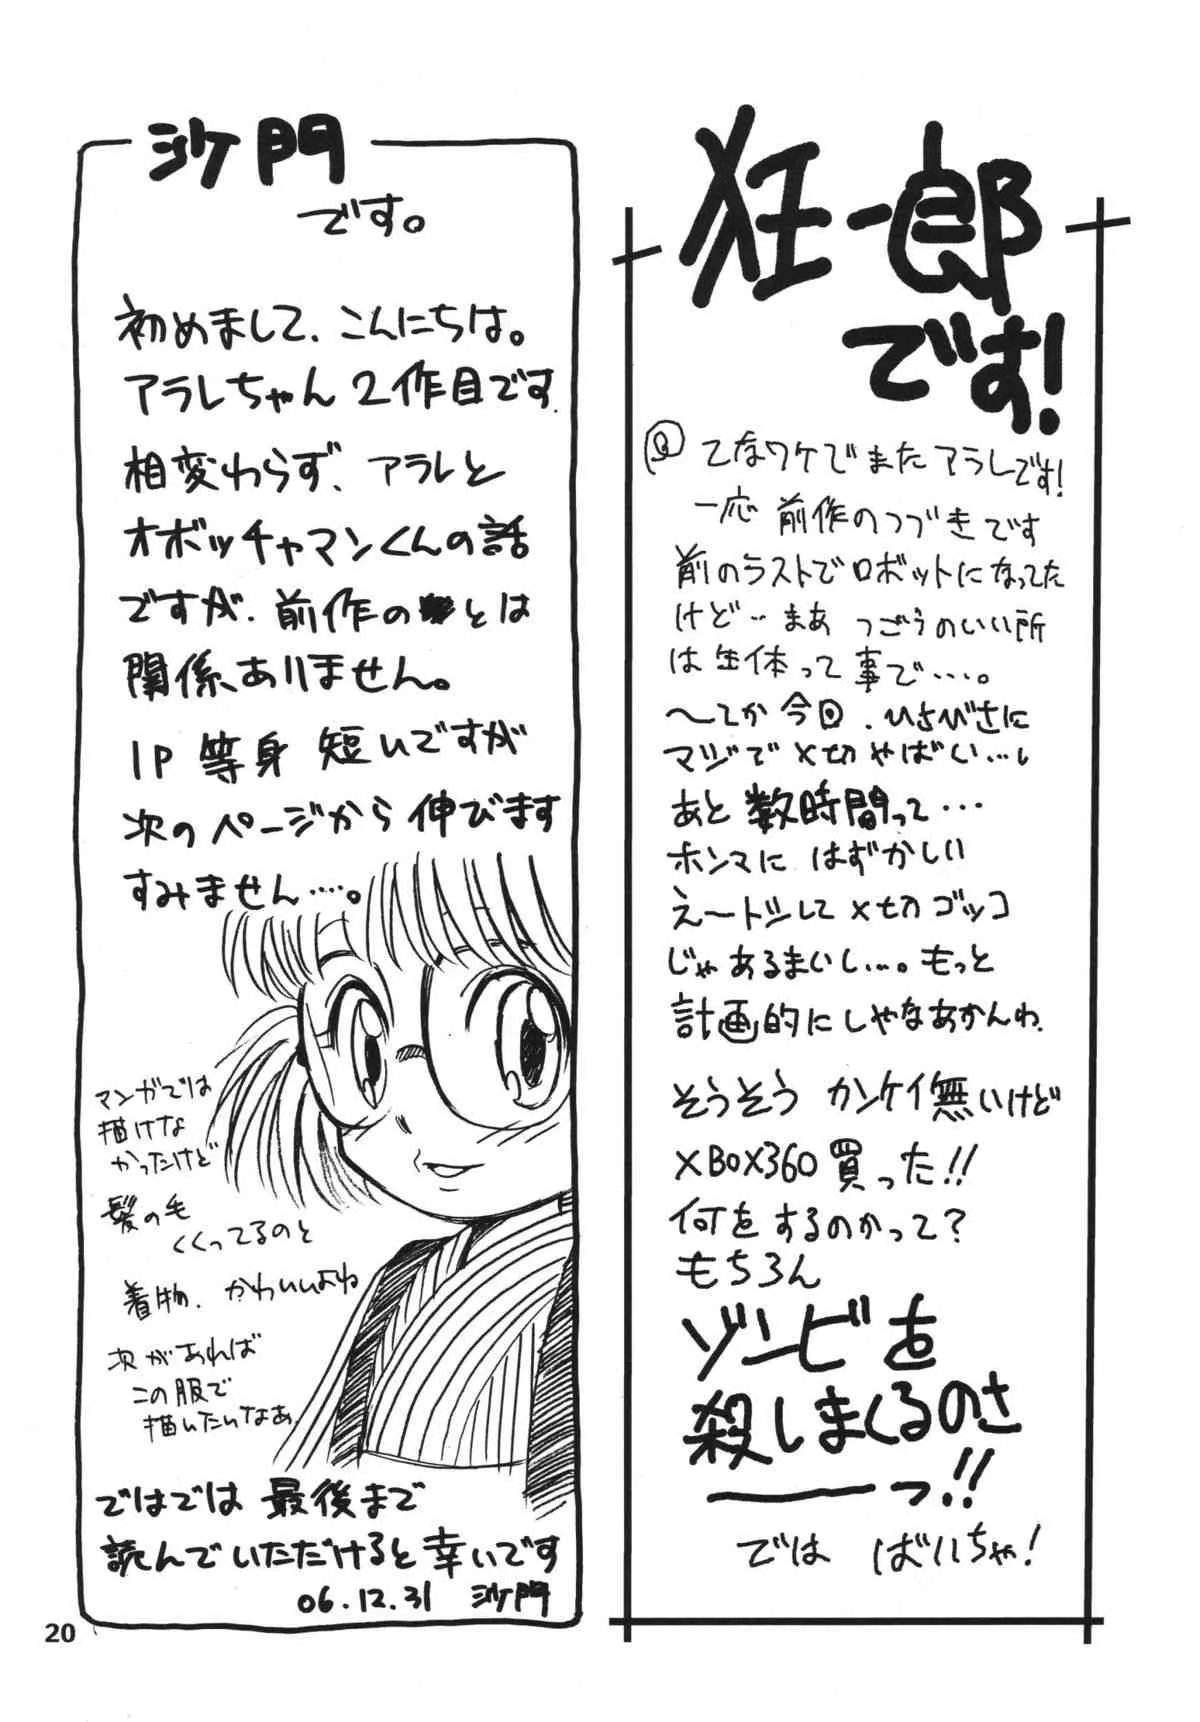 狂一郎
です!
てなワケでまたアラレです!
一応 前作のつづきです
前のラストでロボットになってた
けど‥まあ つごうのいい所
は生体って事で‥‥。
〜てか今回、ひさびさに
マジで〆切やばい…。
あと数時間って…
ホンマに はずかしい
え〜トシして〆切ゴッコ
じゃあるまいし…。もっと
計画的にしゃなあかんわ、
そうそう カンケイ無いけど
XBOX360買った!!
何をするのかって?
もちろん
ゾンビを
殺しまくるのさ
――っ!!
では ばいちゃ!
沙門
です。
初めまして、こんにちは。
アラレちゃん 2作目です.
相変わらず、アラレと
オボッチャマンくんの話
ですが、前作のとは
関係、ありません。
1P 等身 短いですが
次のページから 伸びます
すみません‥‥。
マンガでは
描けな
かったけど
髪の毛
くくってるのと
着物、かわいいよね
次があれば
この服で
描いたいなあ、
ではでは 最後まで
読んでいただけると幸いです
06.12.31 沙門
20